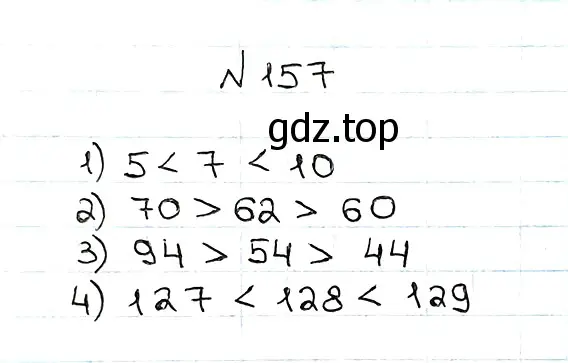 N 157
gdz.top
1) 5 < 7 < 10
2) 70 > 62 > 60
3) 94 > 54 > 44
4) 127 < 128 < 129